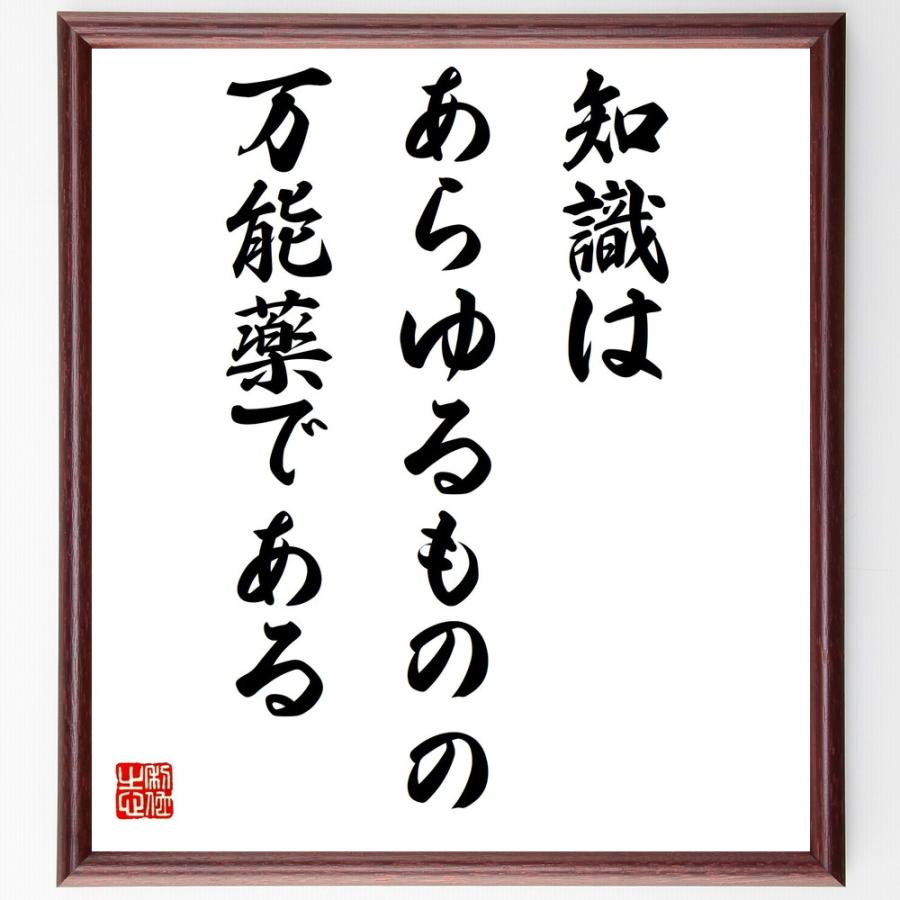 知識は
あらゆるものの
万能薬である